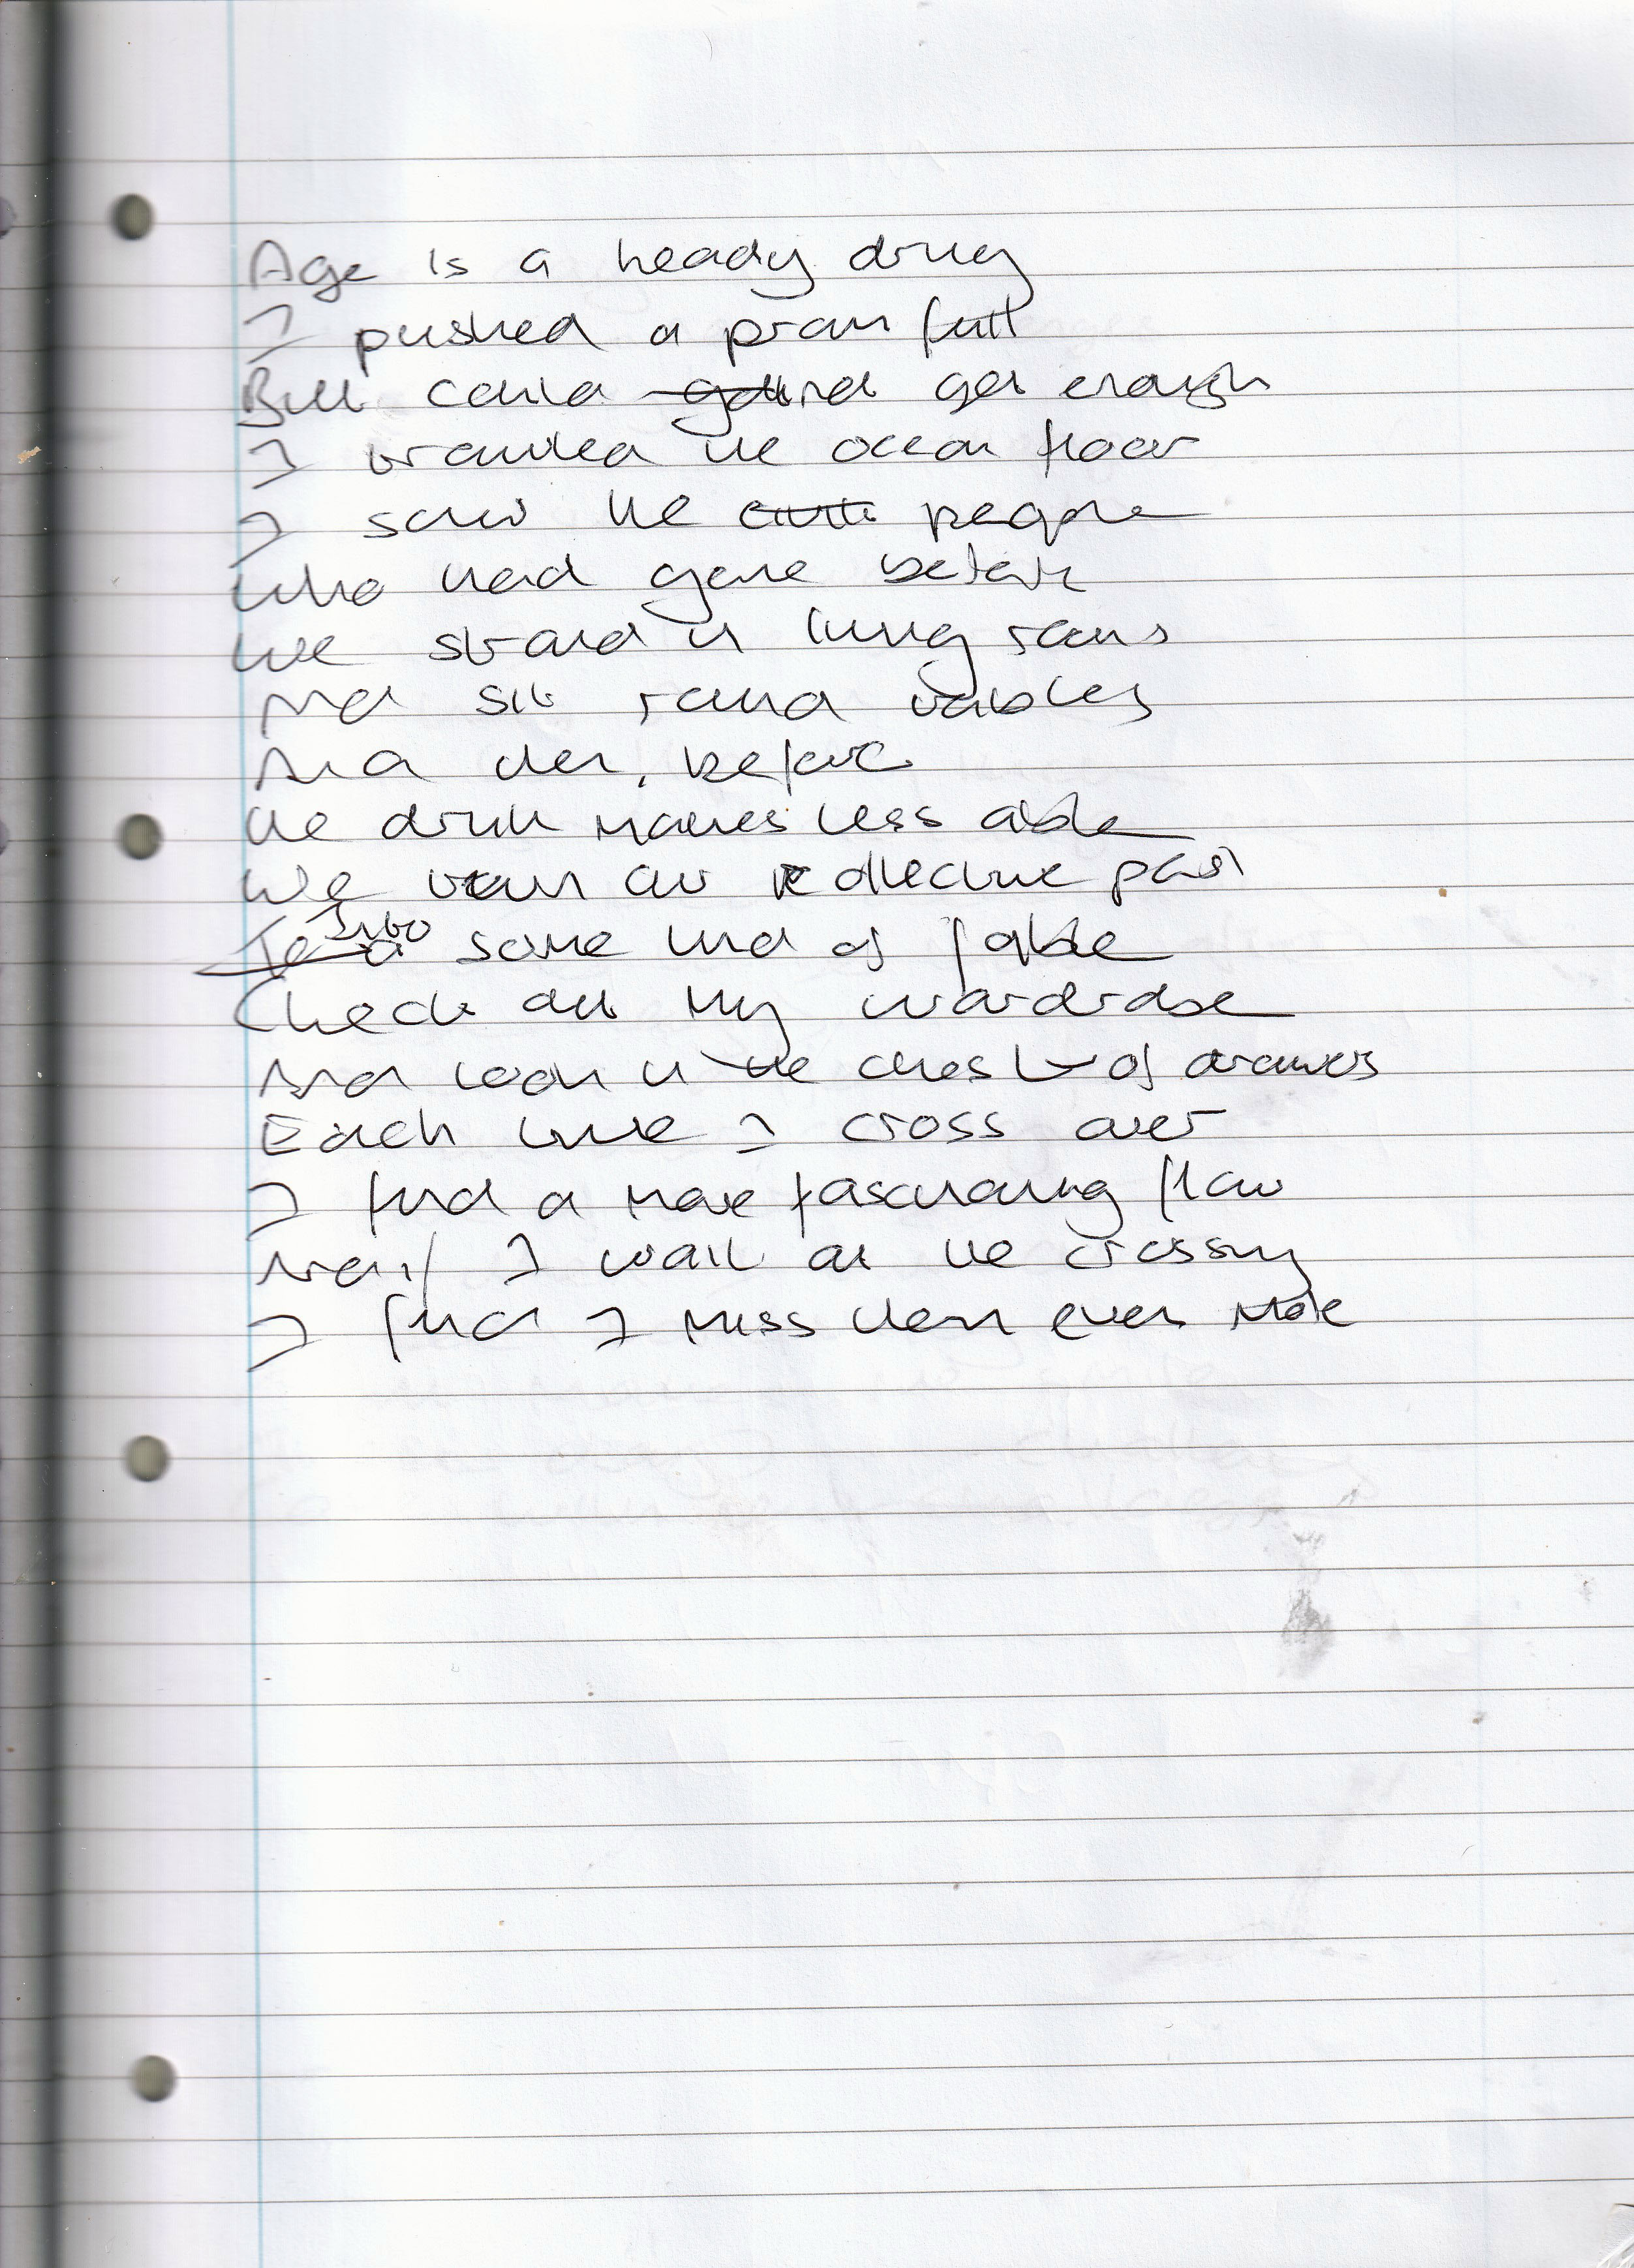 Age is a heady drug
I pushed a pram full
But could not get enough
I trawled the ocean floor
I saw the people
Who had gone before
We stand in long rows
And sit round tables
And then, before
the drink makes less able
We turn our collective past
Into some kind of fable
Check out my wardrobe
And look in the chest of drawers
Each time I cross over
I find a more fascinating flaw
And if I wait at the crossing
I find I miss them even more